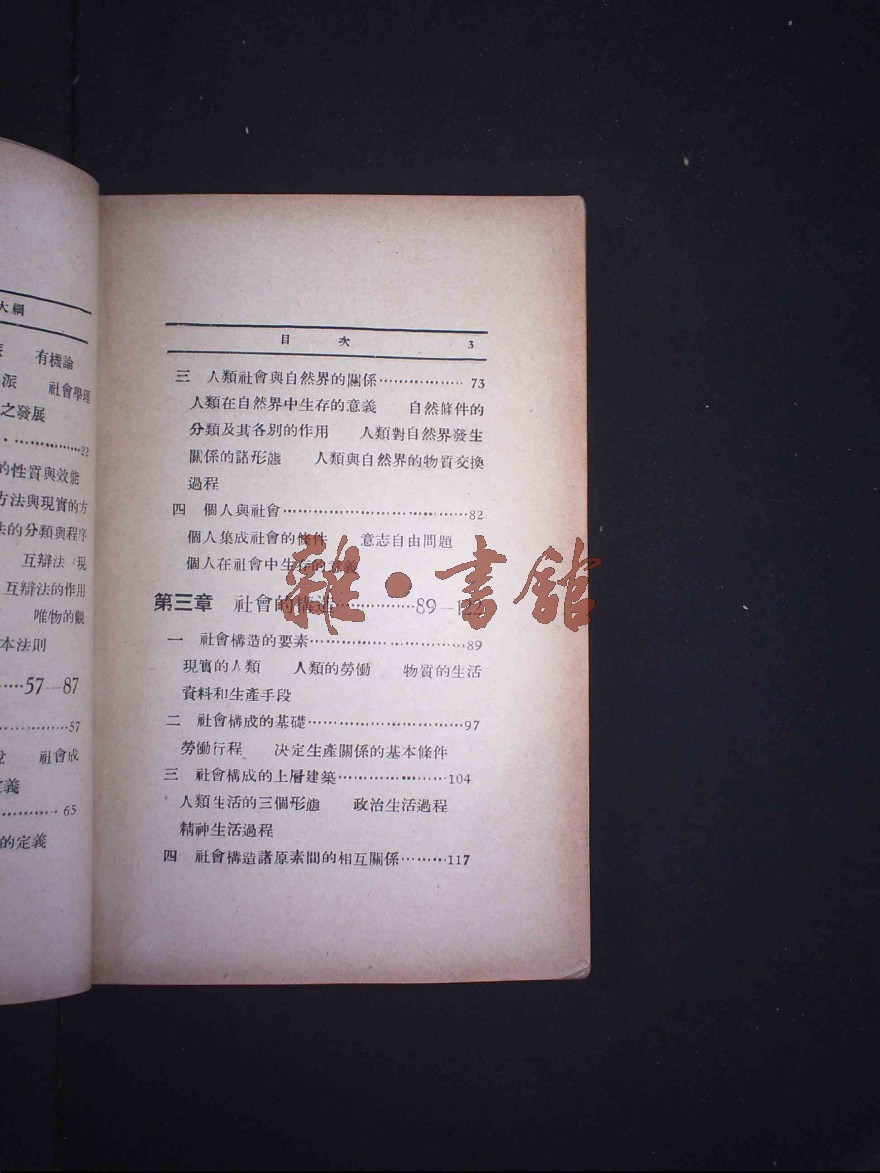 大綱
有機論
派　社會學理
之發展
22
的性質與效能
方法與現實的方
法的分類與程序
互辯法　現
互辯法的作用
唯物的觀
本法則
……57—87
57
社會成
65
的定義
目　次　3
三　人類社會與自然界的關係………………73
人類在自然界中生存的意義　自然條件的
分類及其各別的作用　人類對自然界發生
關係的諸形態　人類與自然界的物質交換
過程
四　個人與社會………………82
個人集成社會的條件　意志自由問題
個人在社會中生存的意義
第三章　社會的構造………………89—122
一　社會構造的要素………………89
現實的人類　人類的勞働　物質的生活
資料和生產手段
二　社會構成的基礎………………97
勞働行程　决定生產關係的基本條件
三　社會構成的上層建築………………104
人類生活的三個形態　政治生活過程
精神生活過程
四　社會構造諸原素間的相互關係………117
雜·書館